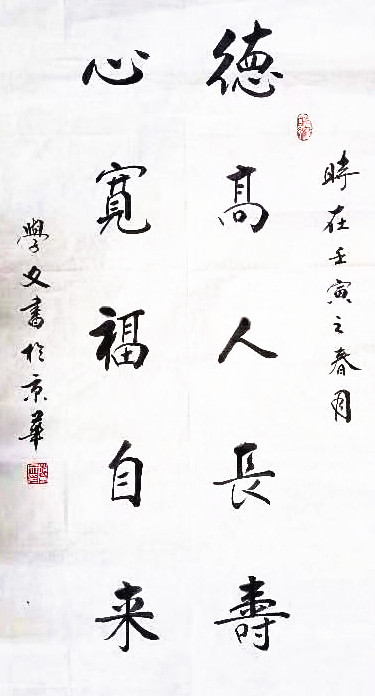 時在壬寅之春月
德高人長壽
心寬福自来
學文書於京華